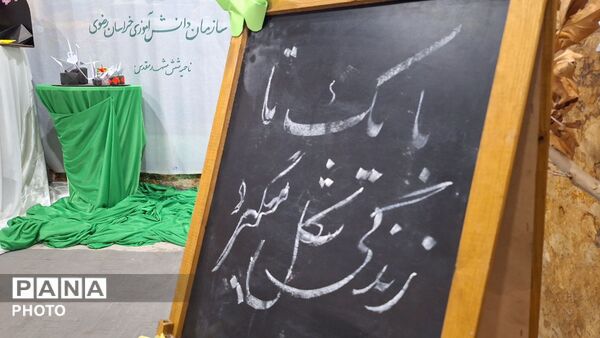 سازمان دانش آموزی خراسان رضوی
ناحیه شش مشهد مقدس
با یک تا
زندگی شکل میگیرد
PANA
PHOTO